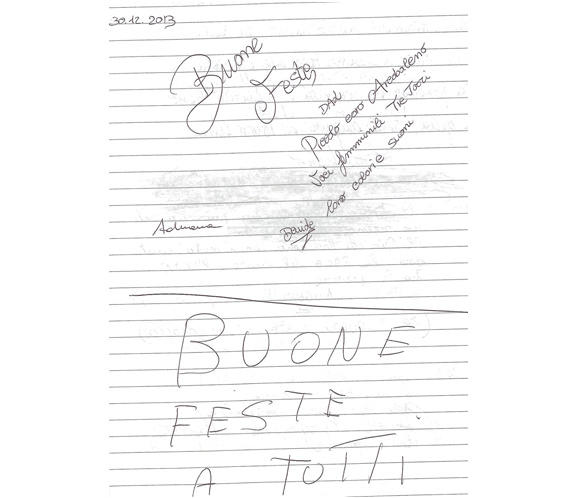 30.12.2013
Buone
Feste
DAL
Piccolo coro Arcobaleno
Voci femminili Tre Torri
Coro colori e suoni
Adriana
Davide
BUONE
FESTE
A TUTTI